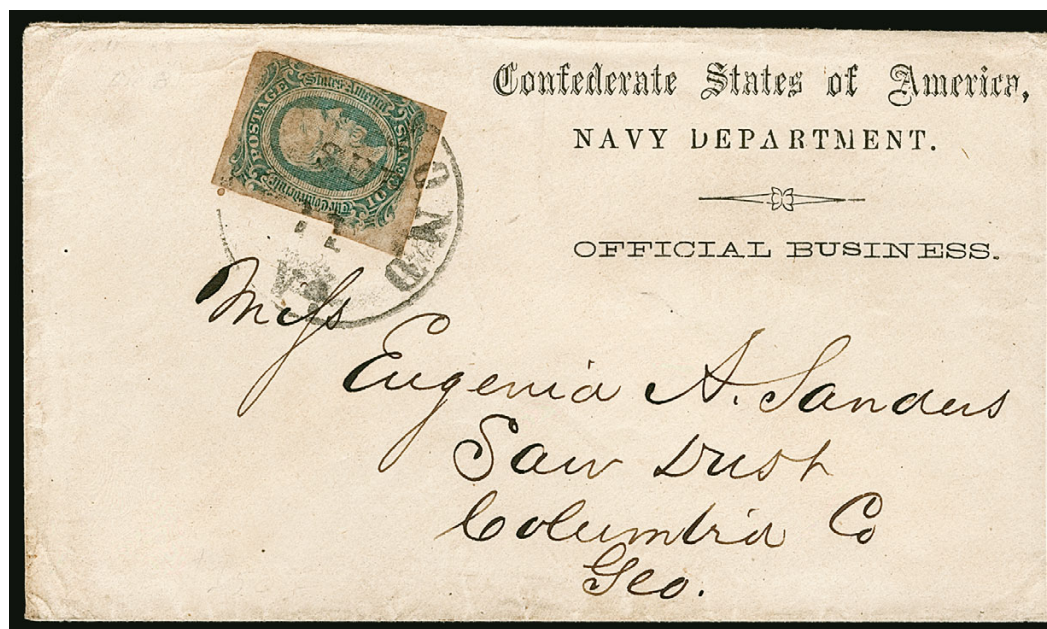 Confederate States of America,
NAVY DEPARTMENT.
OFFICIAL BUSINESS.
POSTAGE
The Confederate
States America
TEN CENTS
Miss
Eugenia A. Sanders
Saw Dust
Columbia Co
Geo.